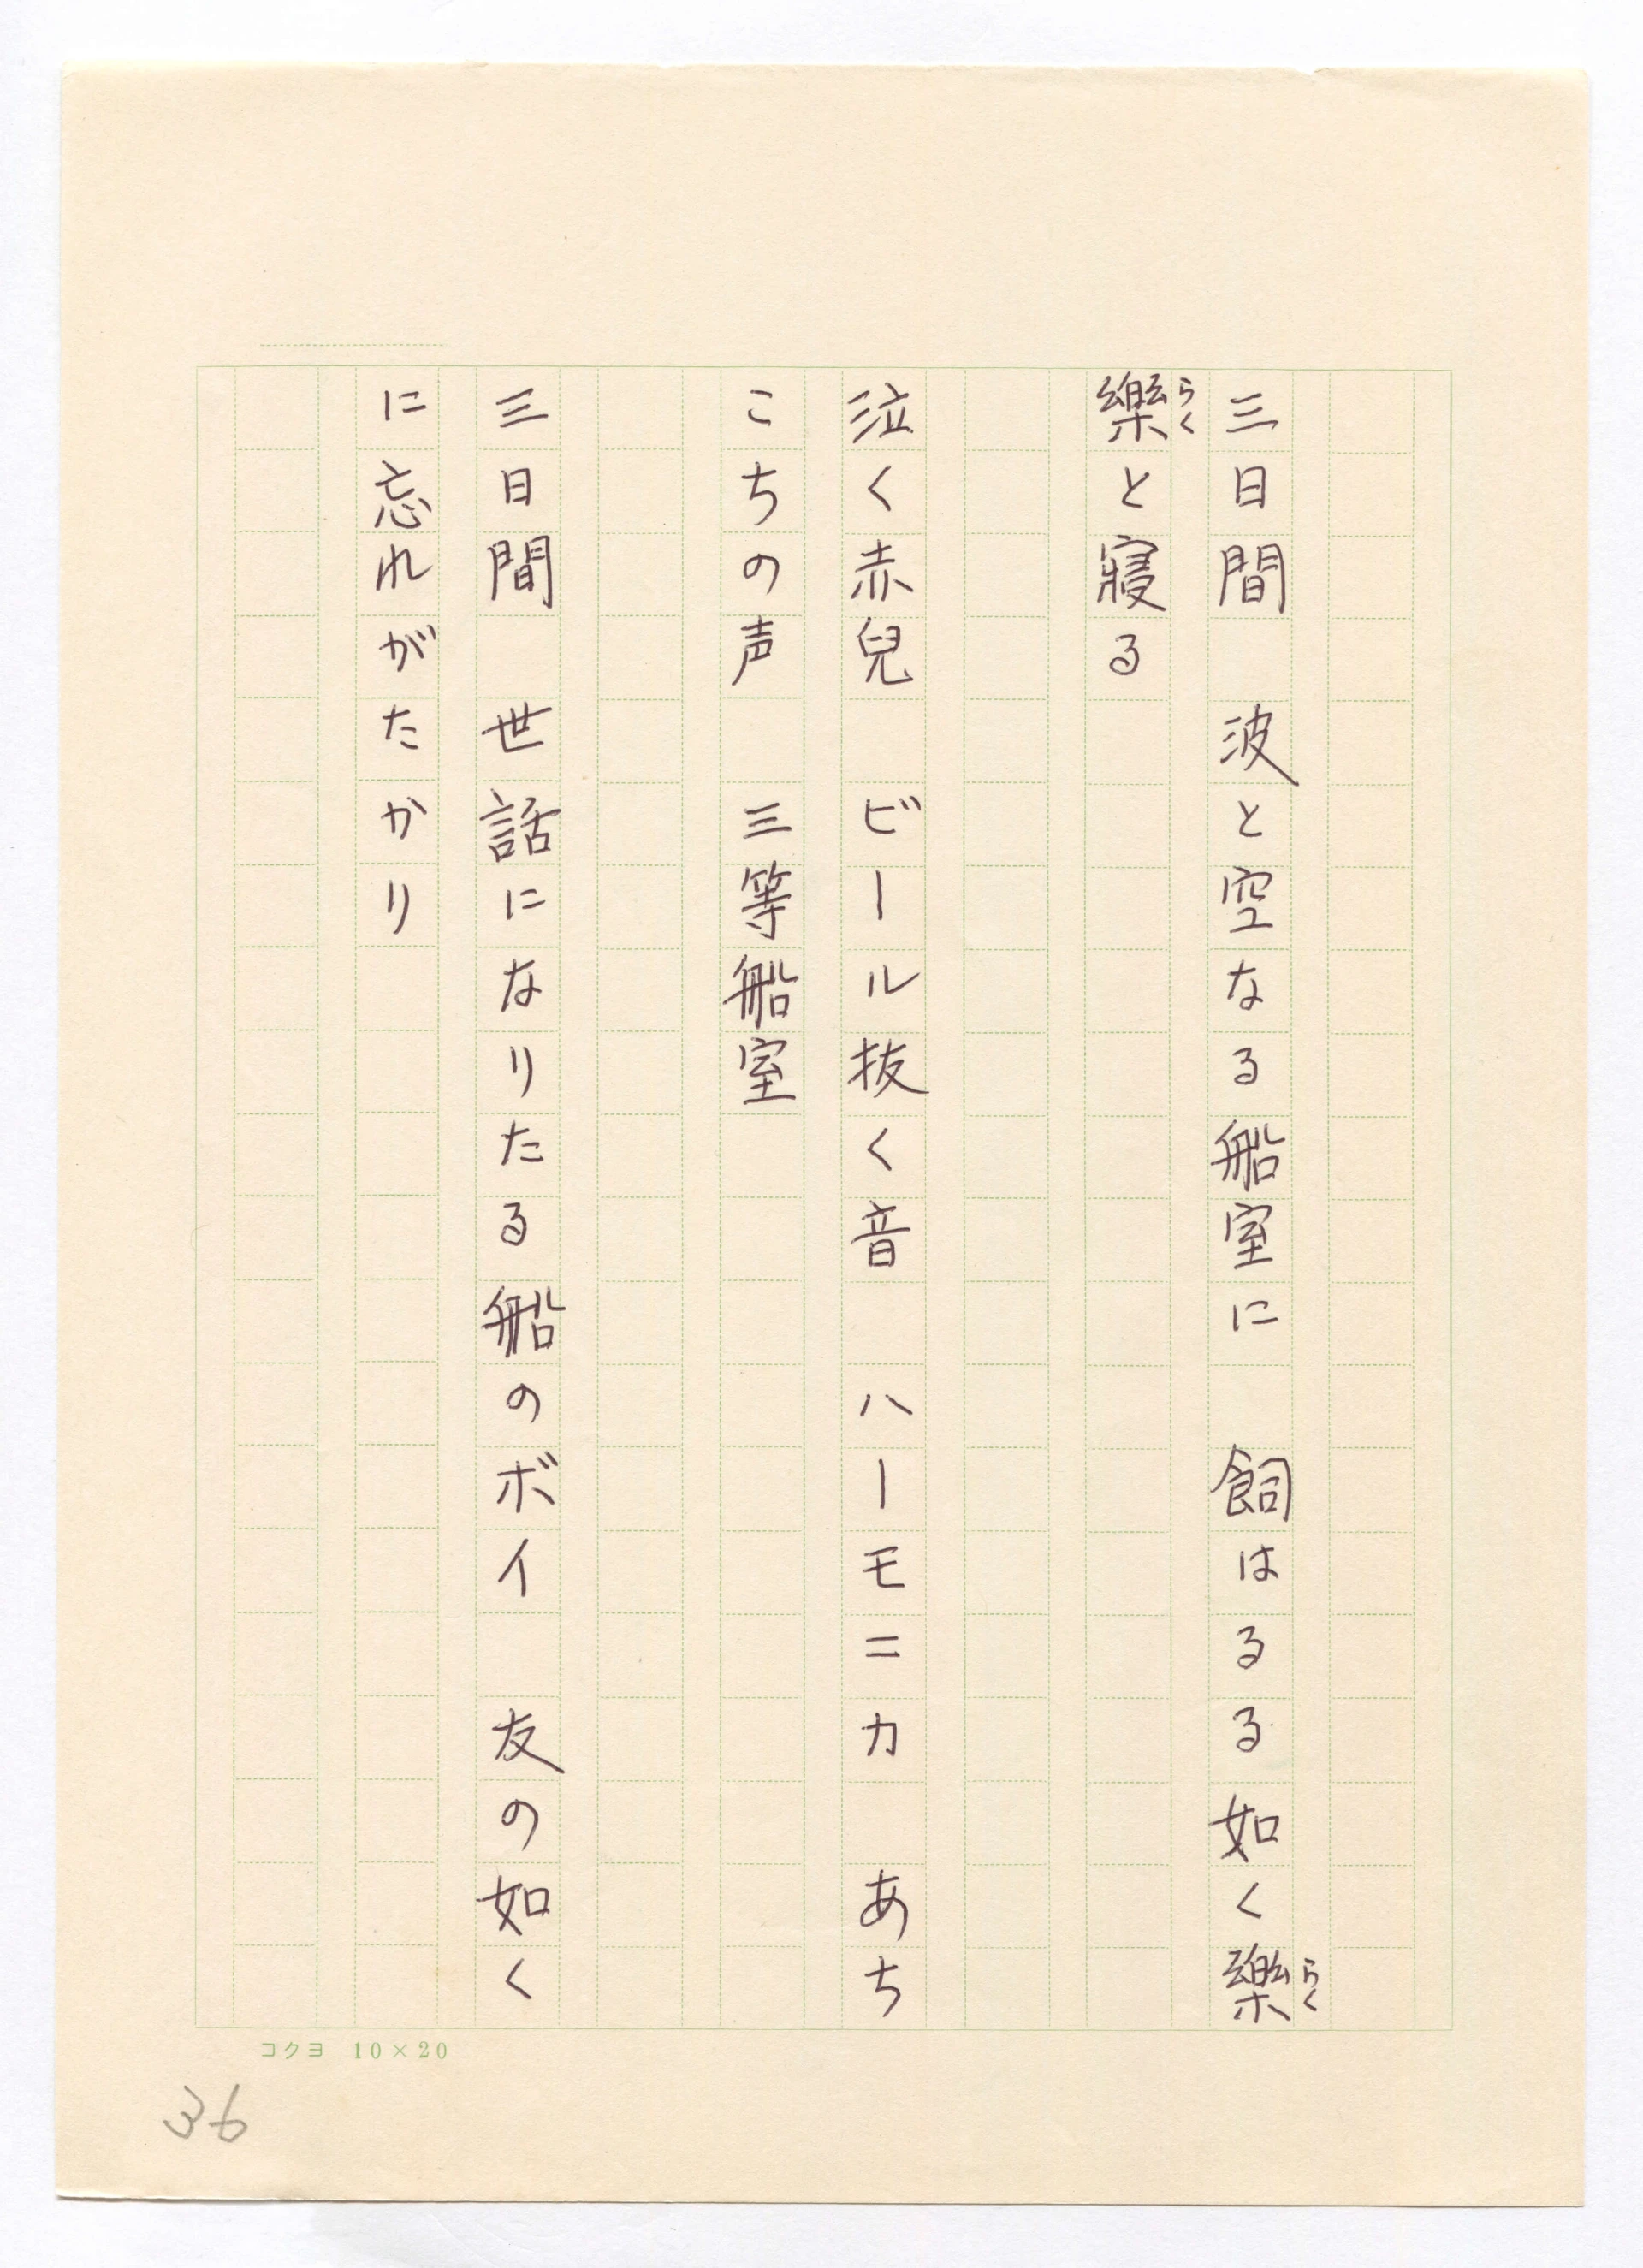 三日間　波と空なる船室に　飼はるる如く樂
樂と寝る
泣く赤兒　ビール抜く音　ハーモニカ　あち
こちの声　三等船室
三日間　世話になりたる船のボイ　友の如く
に忘れがたかり
らく
らく
コクヨ 10×20
36